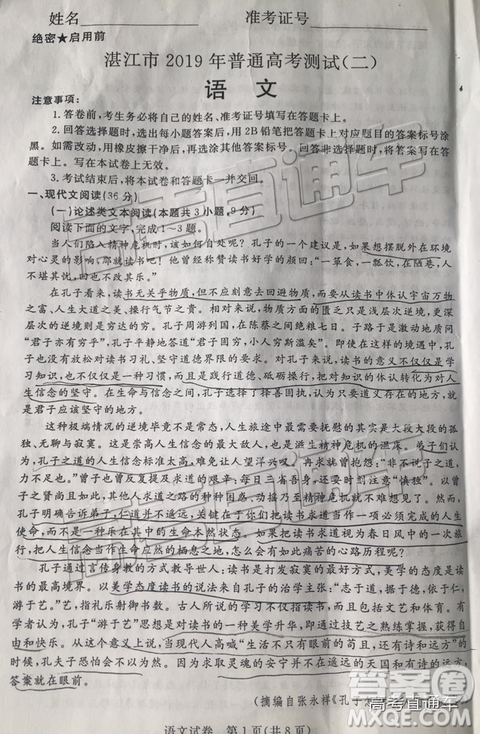 姓名 准考证号
绝密★启用前
湛江市2019年普通高考测试(二)
语 文
注意事项:
1.答卷前,考生务必将自己的姓名、准考证号填写在答题卡上。
2.回答选择题时,选出每小题答案后,用2B铅笔把答题卡上对应题目的答案标号涂
黑。如需改动,用橡皮擦干净后,再选涂其他答案标号。回答非选择题时,将答案写在答题
卡上。写在本试卷上无效。
3.考试结束后,将本试卷和答题卡一并交回。
一、现代文阅读(36分)
(一)论述类文本阅读(本题共3小题,9分)
阅读下面的文字,完成1~3题。
当人们陷入精神危机时,该如何自处呢?孔子的一个建议是,如果想摆脱在环境
对心灵的影响,那就读书吧!他曾经称赞颜回读书好学的:“一箪食,一瓢饮,在陋巷,人
不堪其忧,回也不改其乐。”
在孔子看来,读书无关乎物质,但不应刻意去回避物质,而要从读书中体认宇宙万物
之富、人生大道之美、操行气节之贵。相对来说,物质方面的匮乏只是浅层次的逆境,更深
层次的逆境则是信仰危机。孔子周游列国,在陈蔡之间绝粮七日。子路于是激动地质问
“君子亦有穷乎”,孔子平静地答道“君子固穷,小人穷斯滥矣”。即使在这样的境遇中,孔子
也没有放松对读书习礼、坚守道德界限的要求。孔子看来,读书的意义不仅仅是学
习知识,也不仅仅是一种习惯,而且是践行道德、砥砺操行,把对知识的体认转化为对人
生信念的坚守。在生命与信念之间,孔子选择了择善固执,认为只要道义存在的地方,
就是君子应该坚守的地方。
这种极端情况的逆境毕竟不是常态,人生旅途中最常见的其实是大段大段的孤
独、无聊与寂寞。这是人生信念的最大敌人,也是滋生精神危机的温床。弟子们认
为,孔子之道的人生信念标准太高,难免会让人望洋兴叹。冉求就曾抱怨:“非不说子之道,
力不足也。”曾子也曾反复提及求道的艰辛,每日三省吾身,还要时刻注意“慎独”。以曾
子的成就尚且如此,其他人求道之路的种种困惑、动摇、寂寞、彷徨也就可以想见了。然而,
孔子明确告诉弟子,仁道并不遥远,关键在于你们把读书求道当作一项必须完成的人生
使命,而不是一种乐在其中的生命本然状态。如果把读书求道视为春日风中的一次旅
行,把人生信念当作生命应然的栖息之地,怎么会有如此痛苦的心路历程呢?
孔子通过言传身教的方式教导世人:读书是打发寂寞的最好方式,美学的态度是读书
的最高境界。以美学态度读书的说法来自孔子的治学主张:“志于道,据于德,依于仁,
游于艺。”艺,指礼乐射御书数。古人所说的学习不仅指读书,也包括文艺和体育。有
学者认为,孔子“游于艺”思想是对美学精神的一种升华,即通过技艺之熟练掌握,获得自
由和快乐。从这个意义上说,当现代人高喊“生活不只有眼前的苟且,还有诗和远方”
时,孔夫子恐怕会不以为然。因为求取灵魂的安宁并不在遥远的天国和有诗的远方,
答案就在眼前。
(摘编自张永祥《孔子
语文试卷 第1页(共8页)
高考直通车